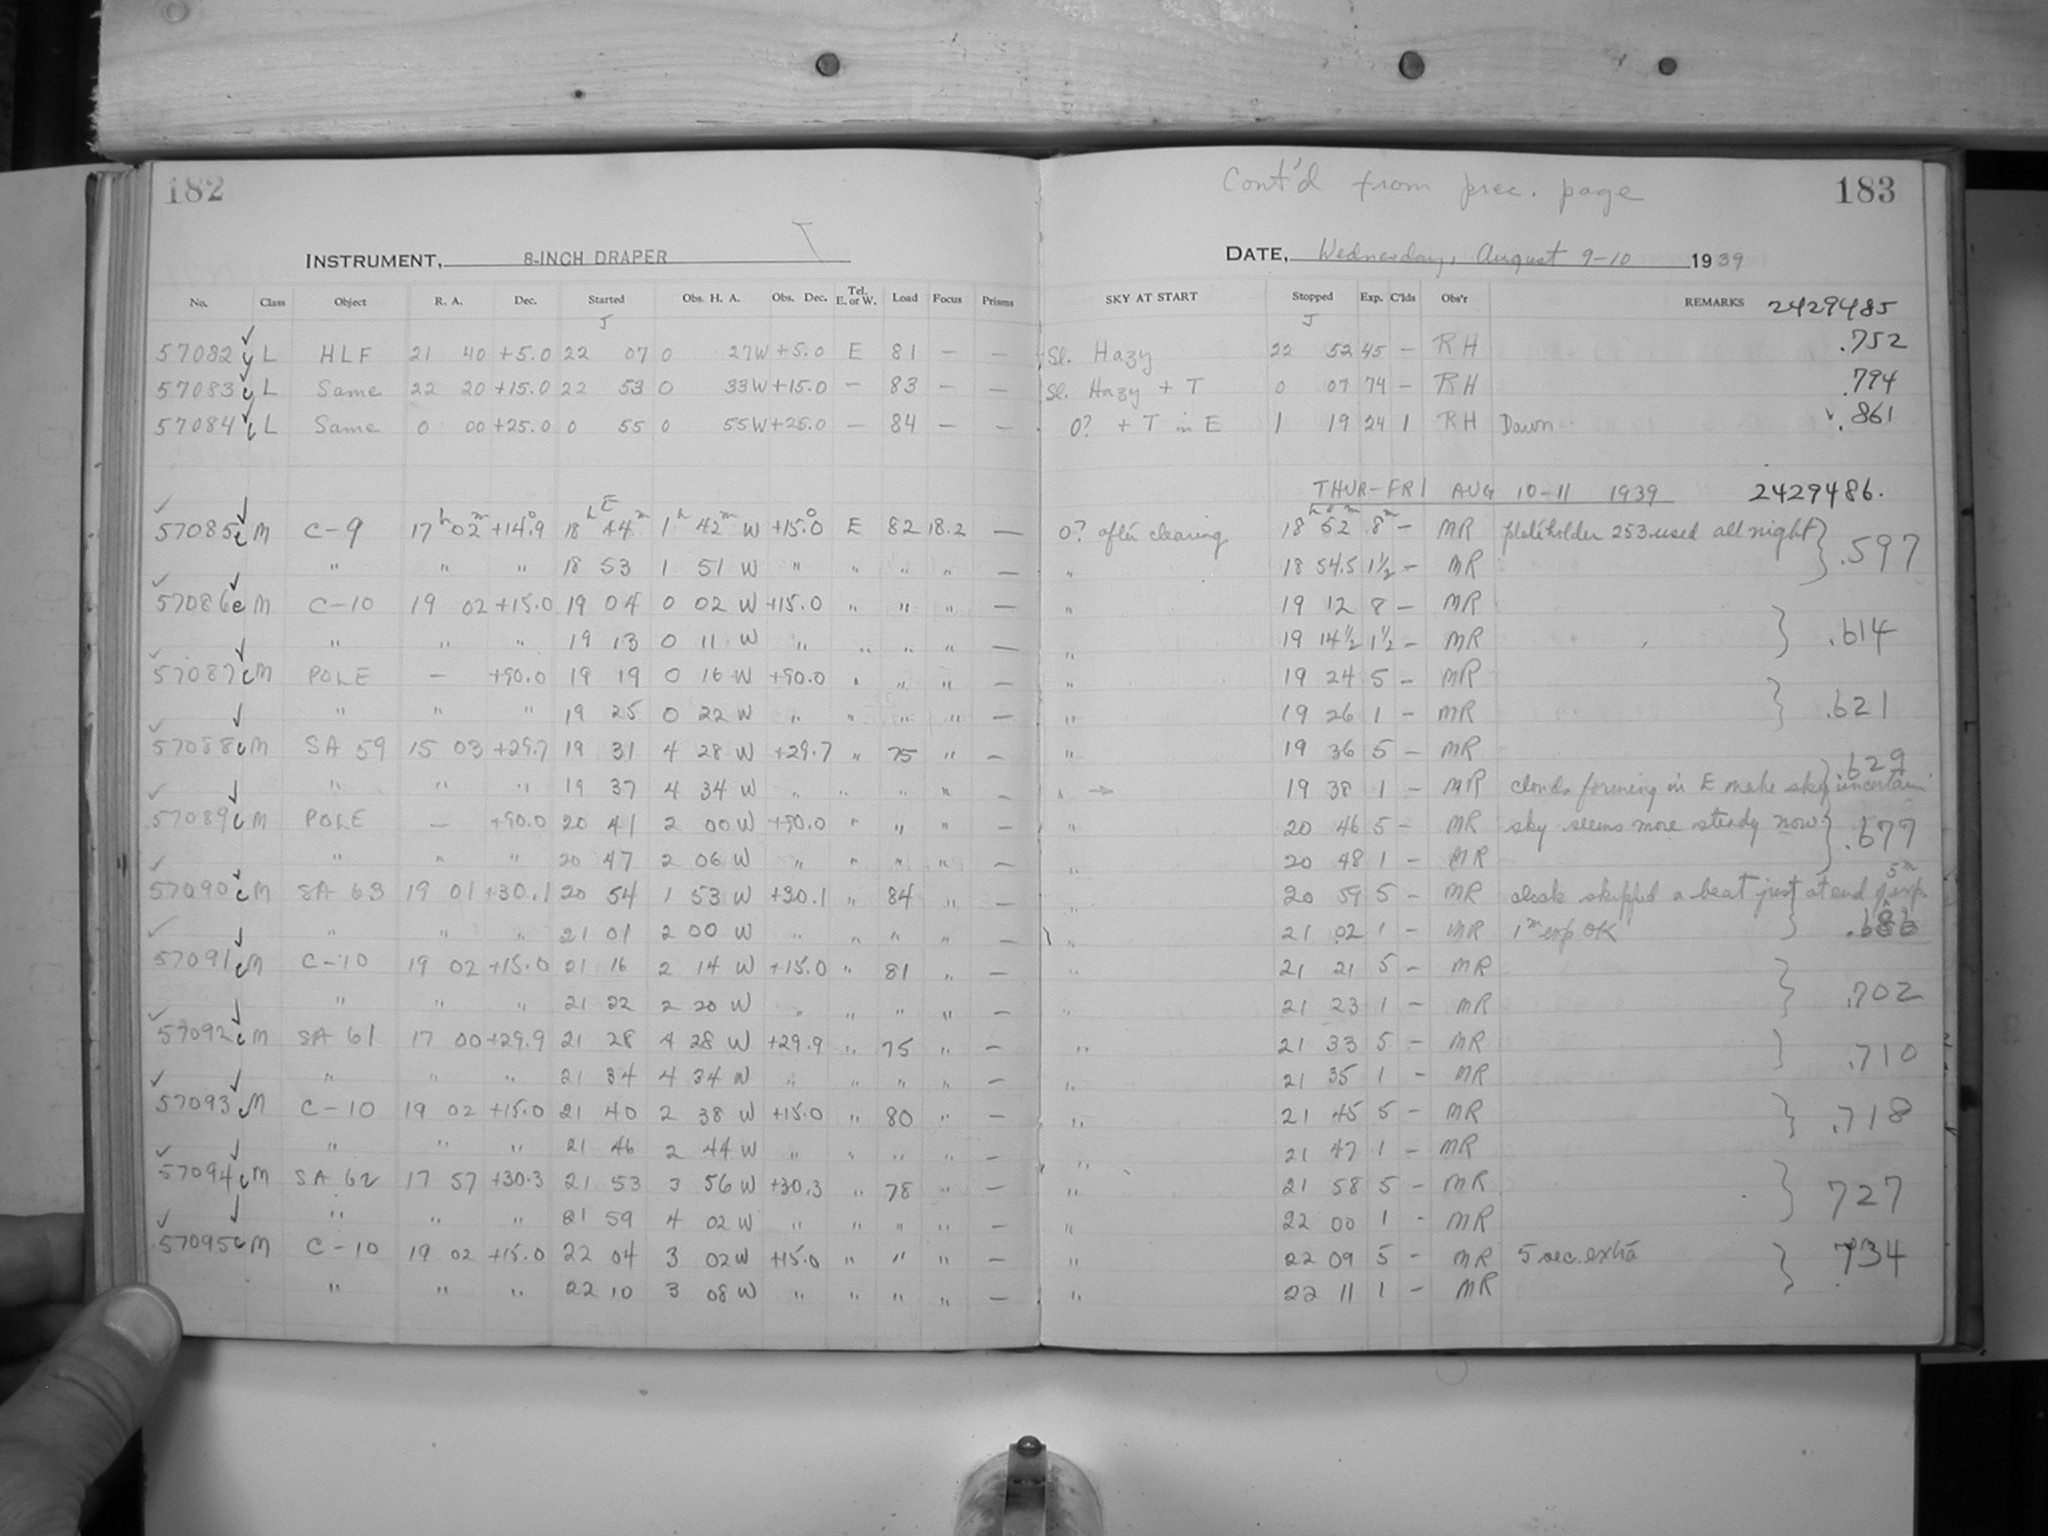 182
Cont'd from prec. page 183
INSTRUMENT, 8-INCH DRAPER T
DATE, Wednesday, August 9-10 1939
No. Class Object R. A. Dec. Started Obs. H. A. Obs. Dec. Tel. E. or W. Load Focus Prisms SKY AT START Stopped Exp. C'lds Obs'r REMARKS 2429485
J J
57082 y L HLF 21 40 +5.0 22 07 0 27W +5.0 E 81 — — Sl. Hazy 22 52 45 — RH .752
57083 L Same 22 20 +15.0 22 53 0 33W +15.0 — 83 — — Sl. Hazy + T 0 07 74 — RH .794
57084 L Same 0 00 +25.0 0 55 0 55W +25.0 — 84 — — 0? + T in E 1 19 24 1 RH Dawn .861
THUR-FRI AUG 10-11 1939 2429486.
E
57085 c M C-9 17h 02m +14.9° 18h 44m 1h 42m W +15.0° E 82 18.2 — 0? after clearing 18h 52m 8m — MR plateholder 253 used all night } .597
" " " 18 53 1 51 W " " " " — " 18 54.5 1½ — MR
57086 c M C-10 19 02 +15.0 19 04 0 02 W +15.0 " " " — " 19 12 8 — MR } .614
" " " 19 13 0 11 W " " " " — " 19 14½ 1½ — MR
57087 c M POLE — +90.0 19 19 0 16 W +90.0 " " " — " 19 24 5 — MR } .621
" " " 19 25 0 22 W " " " " — " 19 26 1 — MR
57088 c M SA 59 15 03 +29.7 19 31 4 28 W +29.7 " 75 " — " 19 36 5 — MR } .629
" " " 19 37 4 34 W " " " " — " → 19 38 1 — MR clouds forming in E make sky uncertain
57089 c M POLE — +90.0 20 41 2 00 W +90.0 " " " — " 20 46 5 — MR sky seems more steady now } .677
" " " 20 47 2 06 W " " " " — " 20 48 1 — MR
57090 c M SA 63 19 01 +30.1 20 54 1 53 W +30.1 " 84 " — " 20 59 5 — MR clock skipped a beat just at end of 5m exp.
" " " 21 01 2 00 W " " " " — " 21 02 1 — MR 1m exp OK }
57091 c M C-10 19 02 +15.0 21 16 2 14 W +15.0 " 81 " — " 21 21 5 — MR } .702
" " " 21 22 2 20 W " " " " — " 21 23 1 — MR
57092 c M SA 61 17 00 +29.9 21 28 4 28 W +29.9 " 75 " — " 21 33 5 — MR } .710
" " " 21 34 4 34 W " " " " — " 21 35 1 — MR
57093 c M C-10 19 02 +15.0 21 40 2 38 W +15.0 " 80 " — " 21 45 5 — MR } .718
" " " 21 46 2 44 W " " " " — " 21 47 1 — MR
57094 c M SA 62 17 57 +30.3 21 53 3 56 W +30.3 " 78 " — " 21 58 5 — MR } 727
" " " 21 59 4 02 W " " " " — " 22 00 1 — MR
57095 c M C-10 19 02 +15.0 22 04 3 02 W +15.0 " " " — " 22 09 5 — MR 5 sec. extra } .734
" " " 22 10 3 08 W " " " " — " 22 11 1 — MR